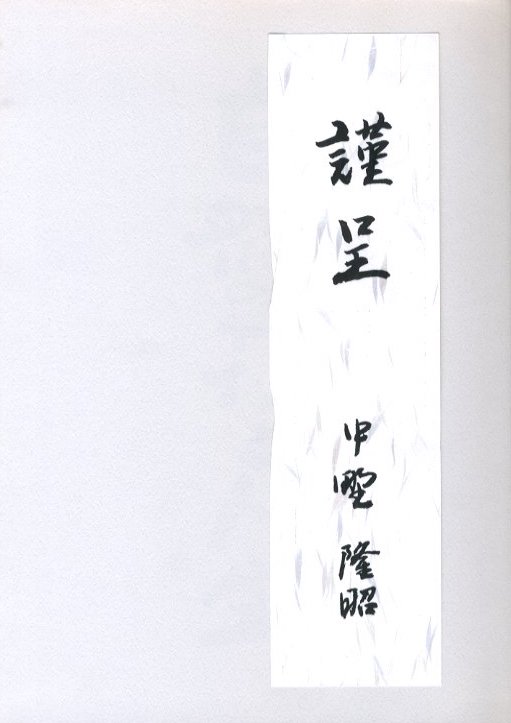 謹呈
中野隆昭